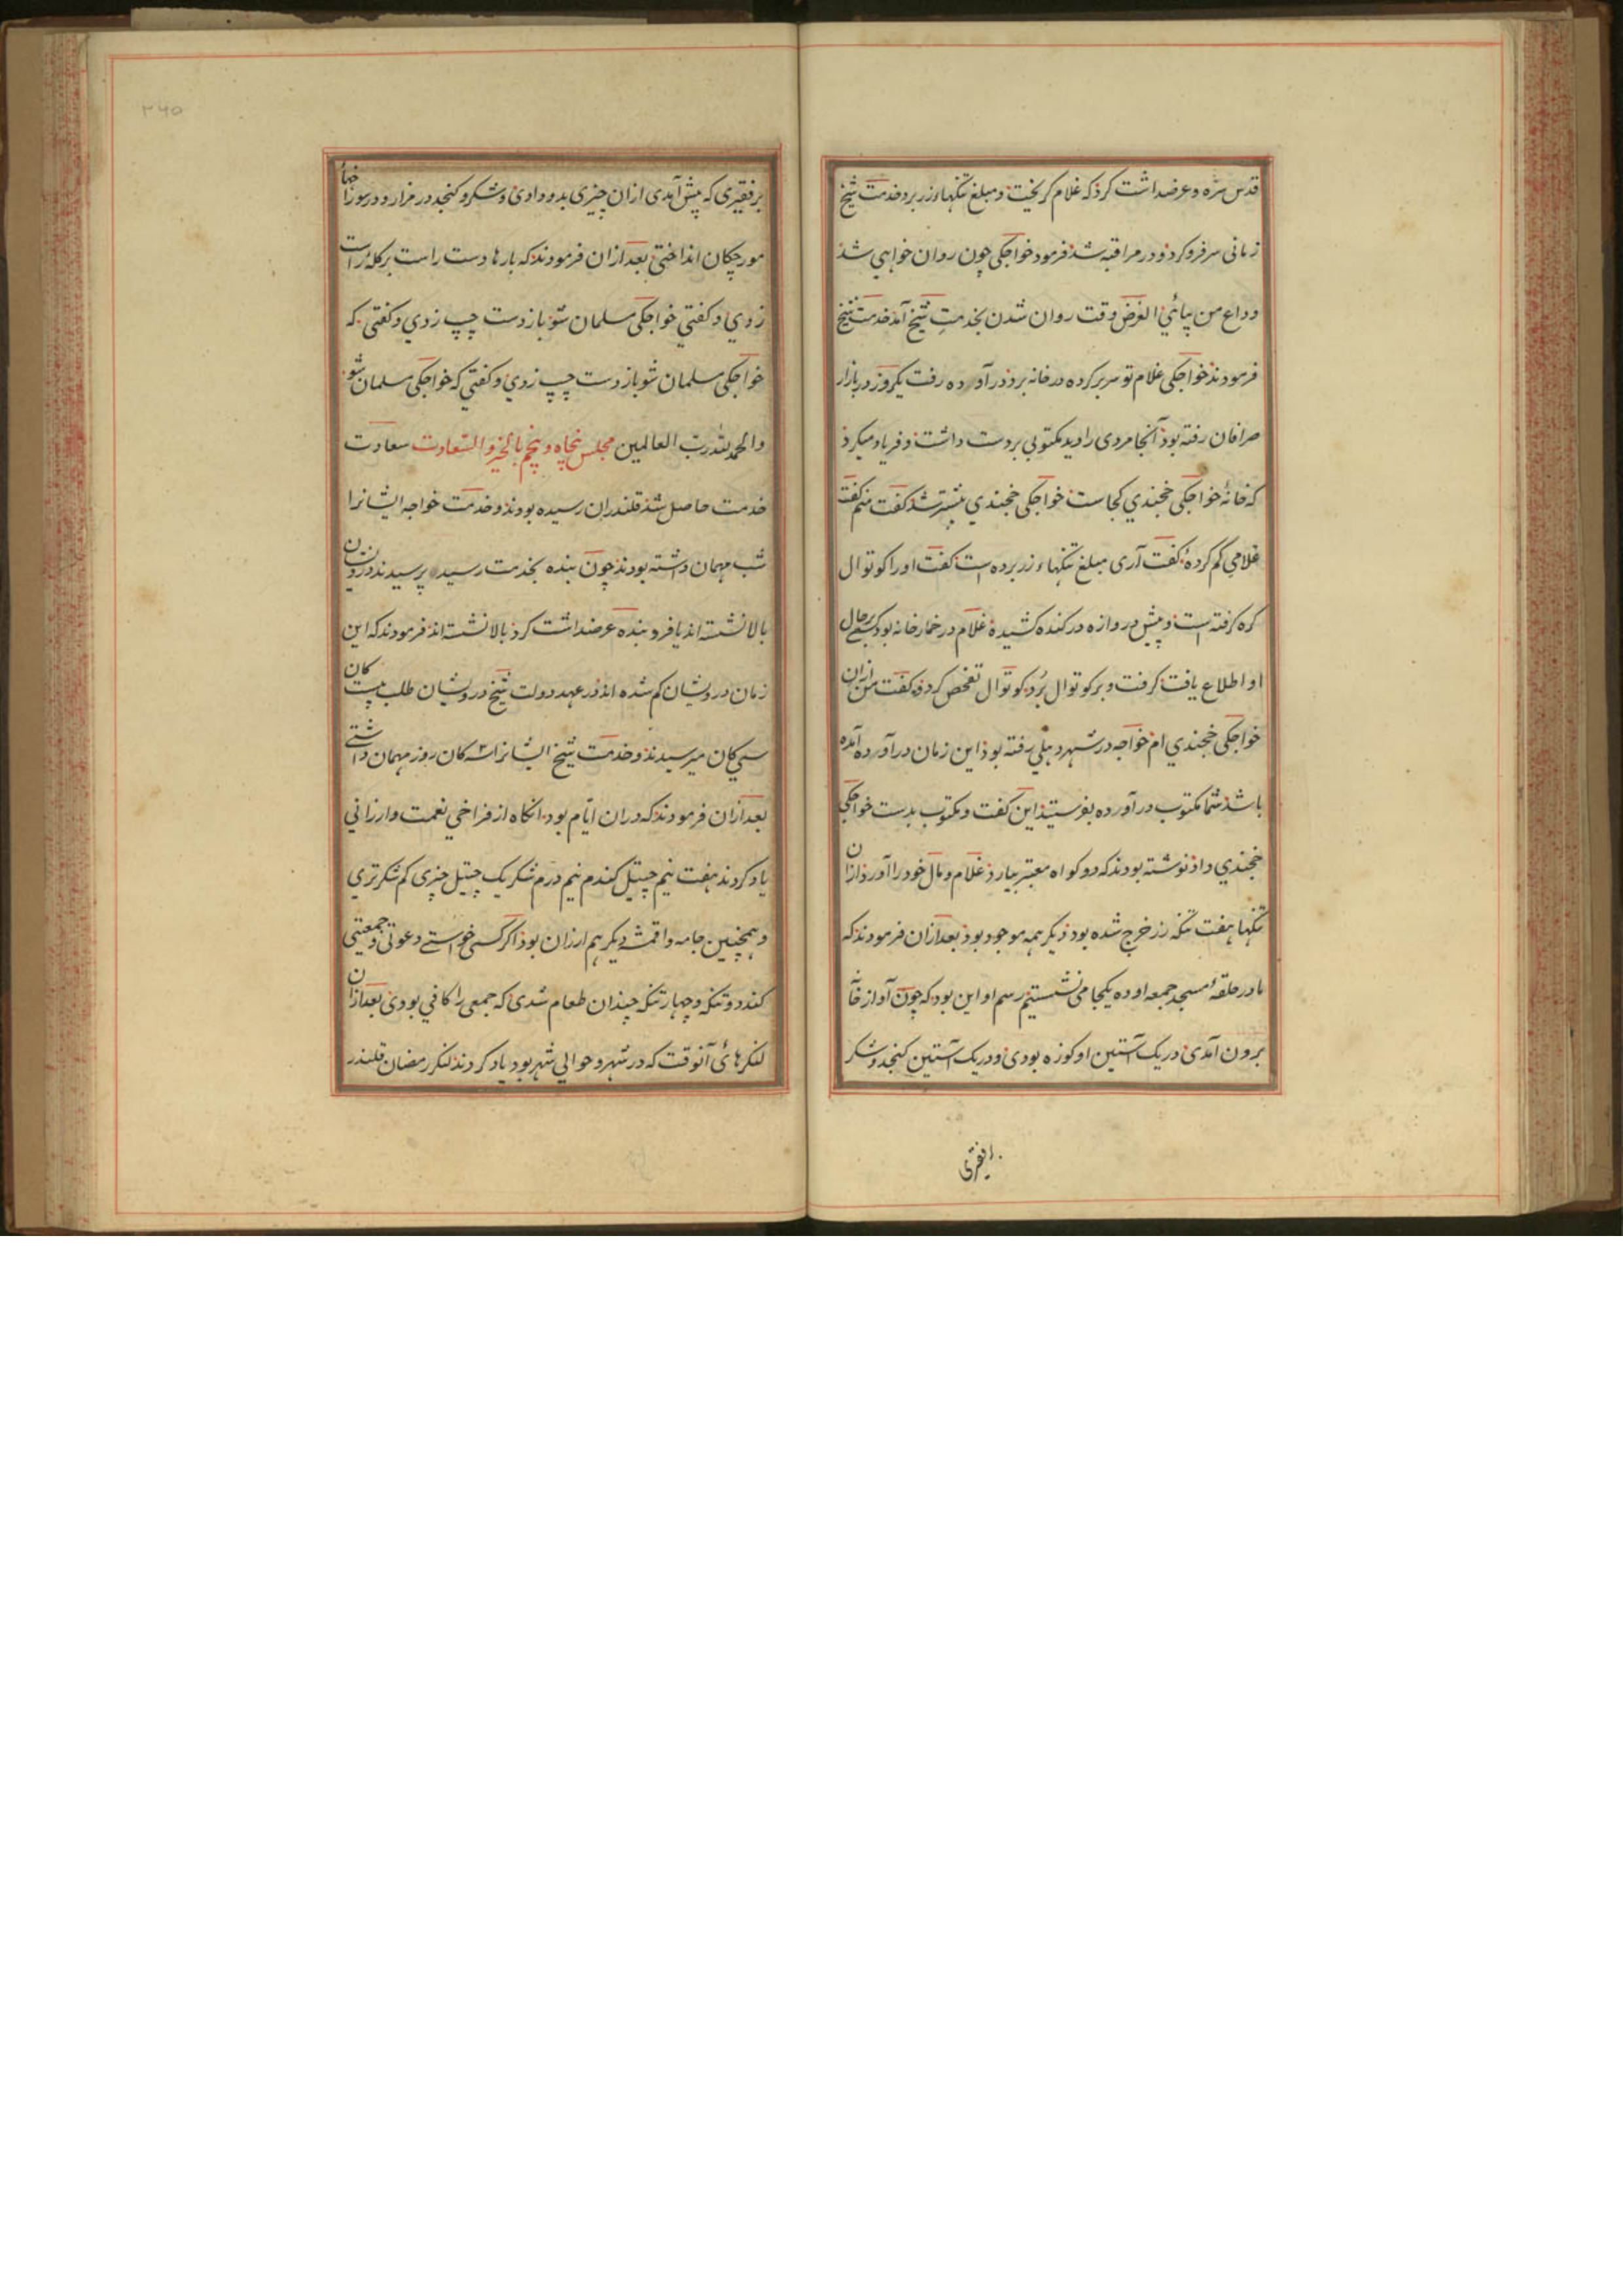 قدس سره و عرضداشت کرد که غلام کریخت و مبلغ تنکهاء زر برد خدمت شیخ
زمانی سر فرو کرد و در مراقبه شد فرمود خواجکی چون روان خواهی شد
وداع من بیائی الغرض وقت روان شدن بخدمت شیخ آمد خدمت شیخ
فرمودند خواجکی غلام تو سر بر کرده در خانه برد در آورده رفت یکروز در بازار
صرافان رفته بود آنجا مردی را دید مکتوبی بر دست داشت و فریاد میکرد
که خانهٔ خواجکی خجندی کجاست خواجکی خجندی پیشتر شد کفت منم کفت
غلامی کم کردهٔ کفت آری مبلغ تنکهاء زر برده است کفت او را کوتوال
کره کرفته است و پیش دروازه در کنده کشیده غلام در خمارخانه بود کسی بر حال
او اطلاع یافت کرفت و بر کوتوال برد کوتوال تفحص کرد کفت من ازان
خواجکی خجندی ام خواجه در شهر دهلی رفته بود این زمان در آورده آمده
باشد شما مکتوب در آورده بفرستید این کفت و مکتوب بدست خواجکی
خجندی داد نوشته بودند که دو کواه معتبر بیارد غلام و مال خود را آورد ازان
تنکها هفت تنکه زر خرج شده بود دیکر همه موجود بود بعد ازان فرمودند که
ما در حلقهٔ مسجد جمعه اوده یکجا می نشستیم رسم او این بود که چون آواز
برون آمدی در یک آستین او کوزه بودی و در یک آستین کنجد و شکر
بر فقیری
۳۴۵
بر فقیری که پیش آمدی ازان چیزی بدو دادی و شکر و کنجد در مزار و در سوراخهاء
مورچکان انداختی بعد ازان فرمودند که بارها دست راست بر کلهٔ راست
زدی و کفتی خواجکی مسلمان شو باز دست چپ زدی و کفتی که
خواجکی مسلمان شو باز دست چپ زدی و کفتی که خواجکی مسلمان شو
والحمد لله رب العالمین مجلس پنجاه و پنجم بالخیر والسعادت سعادت
خدمت حاصل شد قلندران رسیده بودند و خدمت خواجه ایشانرا
شب مهمان داشته بودند چون بنده بخدمت رسید پرسیدند درویشان
بالا نشسته اند یا فرو بنده عرضداشت کرد بالا نشسته اند فرمودند که این
زمان درویشان کم شده اند در عهد دولت شیخ درویشان طلب بیست کان
سی کان میرسیدند و خدمت شیخ ایشانرا سه کان روز مهمان داشتی
بعد ازان فرمودند که دران ایام بود انکاه از فراخی نعمت و ارزانی
یاد کردند هفت نیم چیتل کندم نیم درم شکر یک چیتل چیزی کم شکر تری
و همچنین جامه و اقمشه دیکر هم ارزان بود اکر کسی خواستی دعوتی و جمعیتی
کند دو تنکه و چهار تنکه چندان طعام شدی که جمعی را کافی بودی بعد ازان
لنکرهائی آنوقت که در شهر و حوالی شهر بود یاد کردند لنکر رمضان قلندر